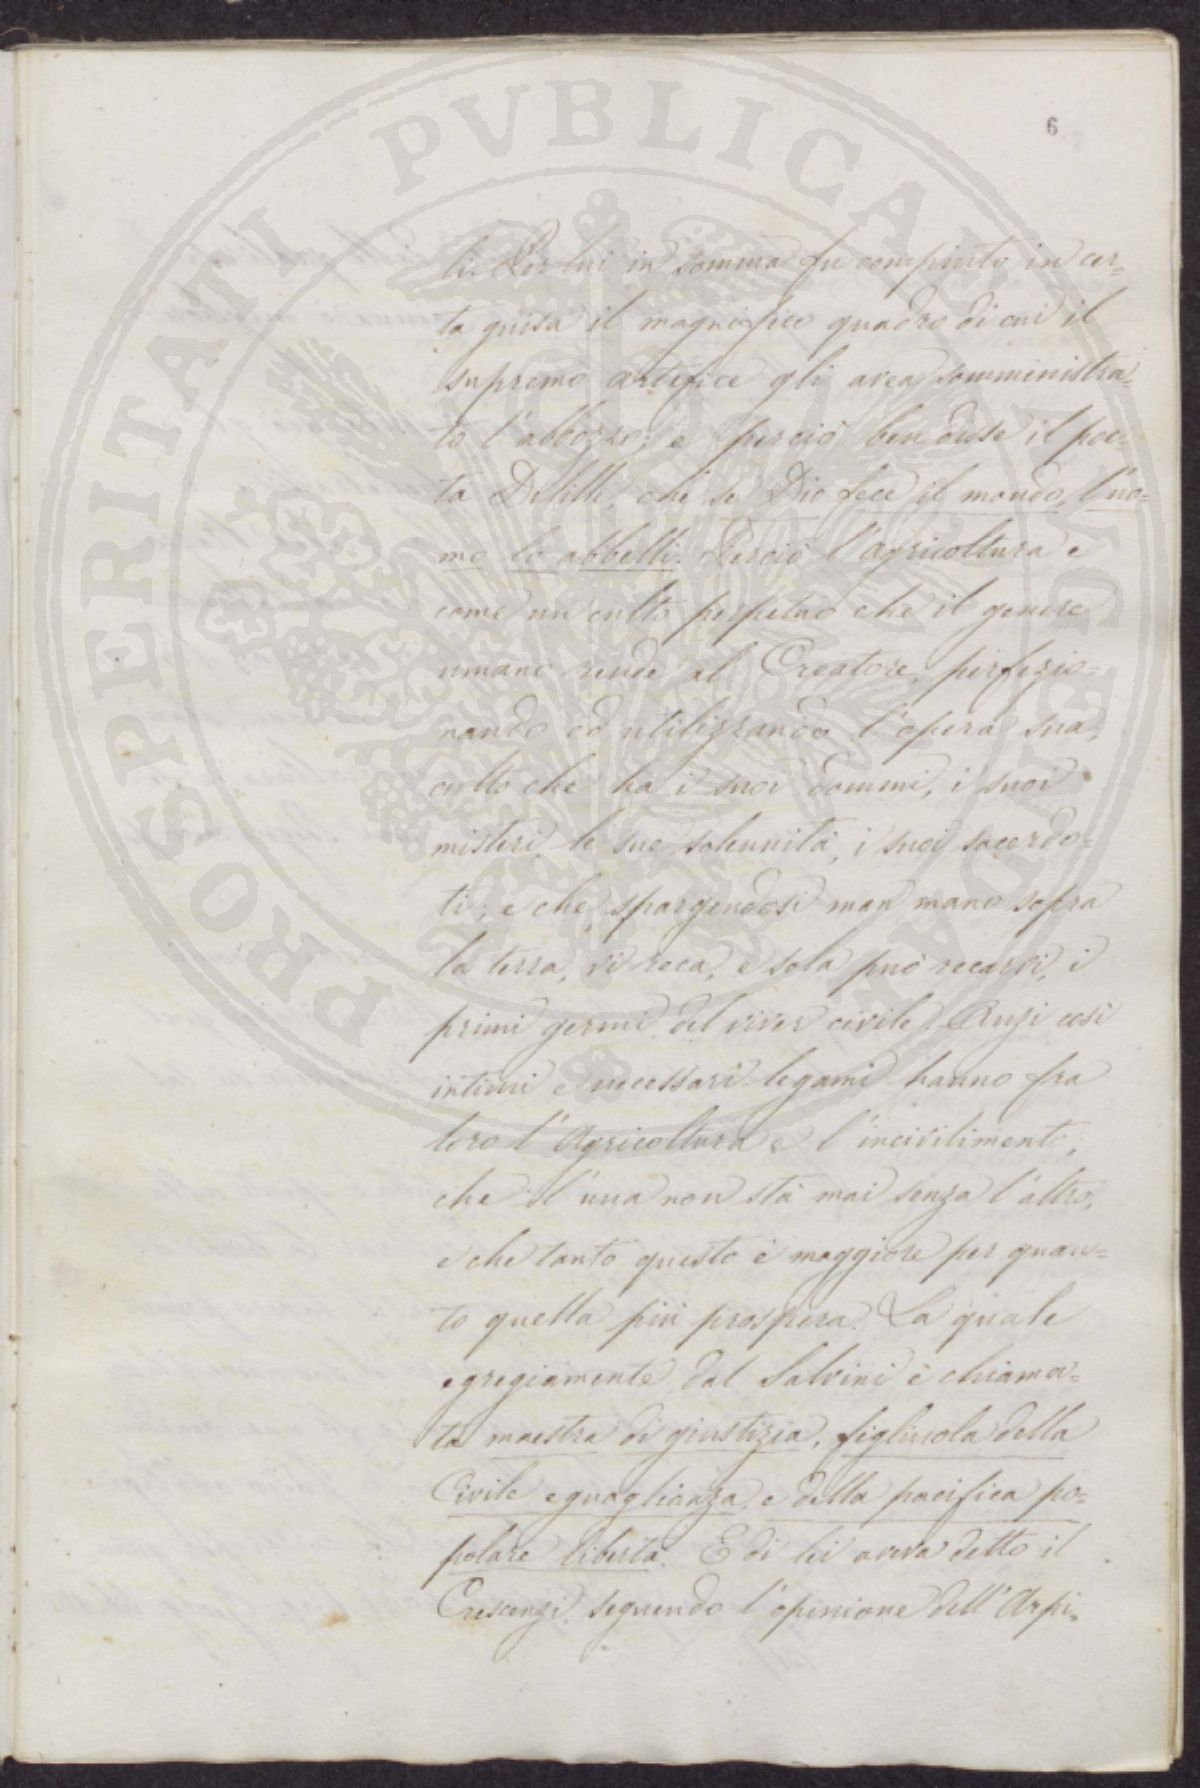 PROSPERITATI PVBLICAE AVGENDAE
6
ti. Per lui in somma fu compiuto in cer=
ta guisa il magnifico quadro di cui il
supremo artefice gli avea somministra=
to l'abbozzo; e perciò ben disse il poe=
ta Delille, che se Dio fece il mondo, l'uo=
mo lo abbellì. Perciò l'agricoltura è
come un culto perpetuo che il genere
umano rende al Creatore, perfezio=
nando ed utilizzando l'opera sua;
culto che ha i suoi dommi, i suoi
misteri, le sue solennità, i suoi sacerdo=
ti; e che, spargendosi man mano sopra
la terra, vi reca, e sola può recarvi, i
primi germi del viver civile. Anzi così
intimi e necessarî legami hanno fra
loro l'Agricoltura e l'incivilimento,
che l'una non sta mai senza l'altro,
e che tanto questo è maggiore per quan=
to quella più prospera. La quale
egregiamente dal Salvini è chiama=
ta maestra di giustizia, figliuola della
Civile eguaglianza, e della pacifica po=
polare libertà. E di lei aveva detto il
Crescenzi, seguendo l'opinione dell'Arpi=